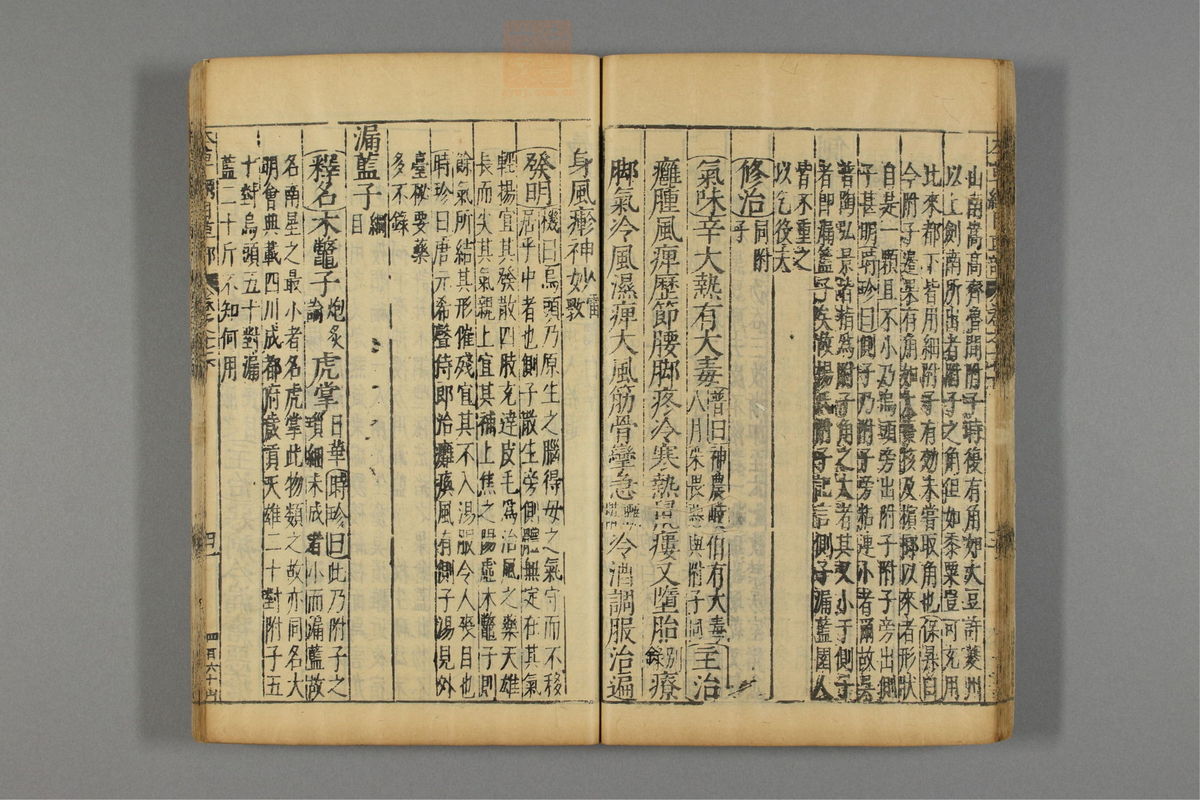 山南嵩高齊魯間附子時復有角如大豆許夔州
以上劍南所出者附子之角但如黍粟豈可充用
比來都下皆用細附子有效未嘗取角也保昇曰
今附子邊果有角如大棗核及檳榔以來者形狀
自是一顆且不小乃烏頭旁出附子附子旁出側
子甚明時珍曰側子乃附子旁粘連小者爾故吳
普陶弘景皆指為附子角之大者其又小于側子
者即漏藍子矣故楊氏附子記言側子漏藍園人
皆不重之
以乞役夫
修治同附
子
氣味辛大熱有大毒普曰神農岐伯有大毒
八月采畏惡與附子同主治
癰腫風痺歷節腰脚疼冷寒熱鼠瘻又墮胎別
錄療
脚氣冷風濕痺大風筋骨攣急甄
權冷酒調服治遍
身風𤺋神妙雷
斆
發明機曰烏頭乃原生之腦得母之氣守而不移
居乎中者也側子散生旁側體無定在其氣
輕揚宜其發散四肢充達皮毛爲治風之藥天雄
長而尖其氣親上宜其補上焦之陽虛木鼈子則
餘氣所結其形摧殘宜其不入湯服令人䘮目也
時珍曰唐元希聲侍郎治癱瘓風有側子湯見外
臺秘要藥
多不錄
漏藍子綱
目
釋名木鼈子炮炙
論虎掌日華時珍曰此乃附子之
瑣細未成者小而漏藍故
名南星之最小者名虎掌此物類之故亦同名大
明會典載四川成都府歲貢天雄二十對附子五
十對烏頭五十對漏
藍二十斤不知何用